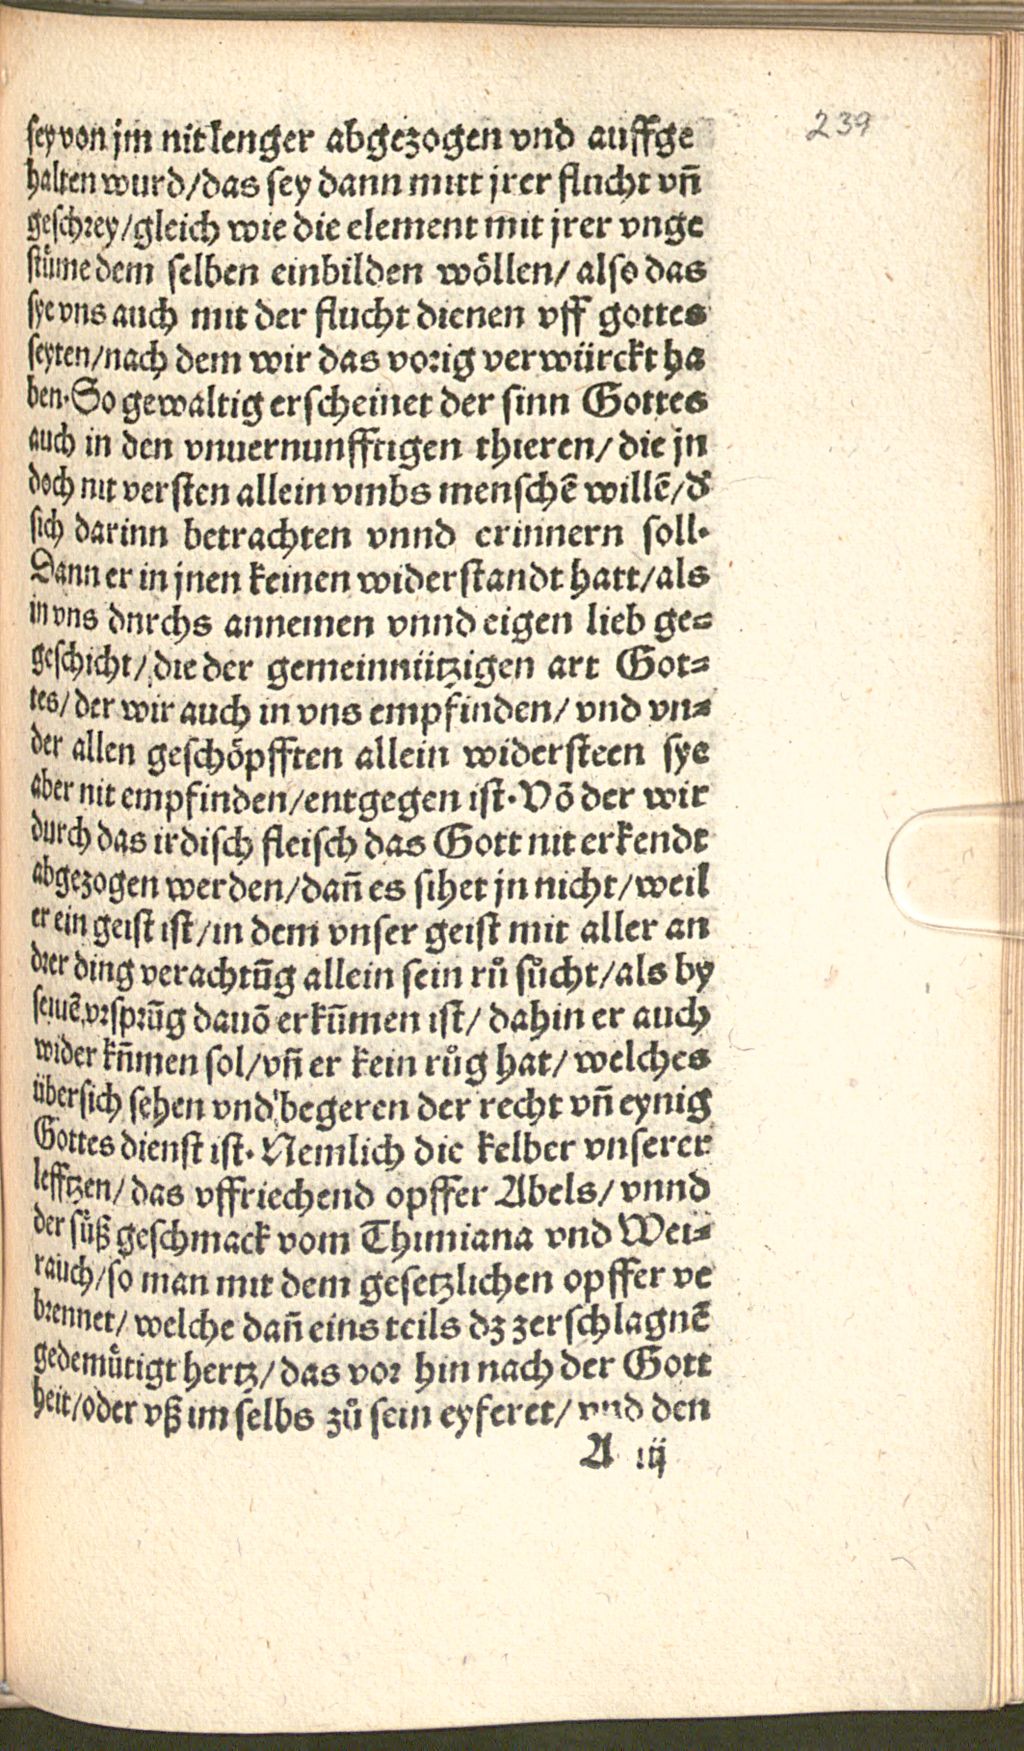 239
sey von jm nit lenger abgezogen vnd auffge
halten wurd/das sey dann mitt jrer flucht vn̄
geschrey/gleich wie die element mit jrer vnge
stuͤme dem selben einbilden woͤllen/ also das
sye vns auch mit der flucht dienen vff gottes
seyten/nach dem wir das vorig verwürckt ha
ben. So gewaltig erscheinet der sinn Gottes
auch in den vnuernunfftigen thieren/ die jn
doch nit versten allein vmbs menschē willē/ď
sich darinn betrachten vnnd erinnern soll.
Dann er in jnen keinen widerstandt hatt/als
in vns dnrchs annemen vnnd eigen lieb ge⸗
geschicht/ die der gemeinnützigen art Got⸗
tes/ der wir auch in vns empfinden/ vnd vn⸗
der allen geschoͤpfften allein widersteen sye
aber nit empfinden/entgegen ist. Vō der wir
durch das irdisch fleisch das Gott nit erkendt
abgezogen werden/dan̄ es sihet jn nicht/weil
er ein geist ist/in dem vnser geist mit aller an
drer ding verachtūg allein sein rů sůcht/als by
seinē vrsprūg dauō erkūmen ist/ dahin er auch
wider kn̄men sol/vn̄ er kein růg hat/ welches
übersich sehen vnd begeren der recht vn̄ eynig
Gottes dienst ist. Nemlich die kelber vnserer
lefftzen/ das vffriechend opffer Abels/ vnnd
der suͤß geschmack vom Thimiana vnd Wei⸗
rauch/so man mit dem gesetzlichen opffer ve
brennet/ welche dan̄ eins teils dz zerschlagnē
gedemuͤtigt hertz/ das vor hin nach der Gott
heit/oder vß im selbs zů sein eyferet/ vnd den
A iij